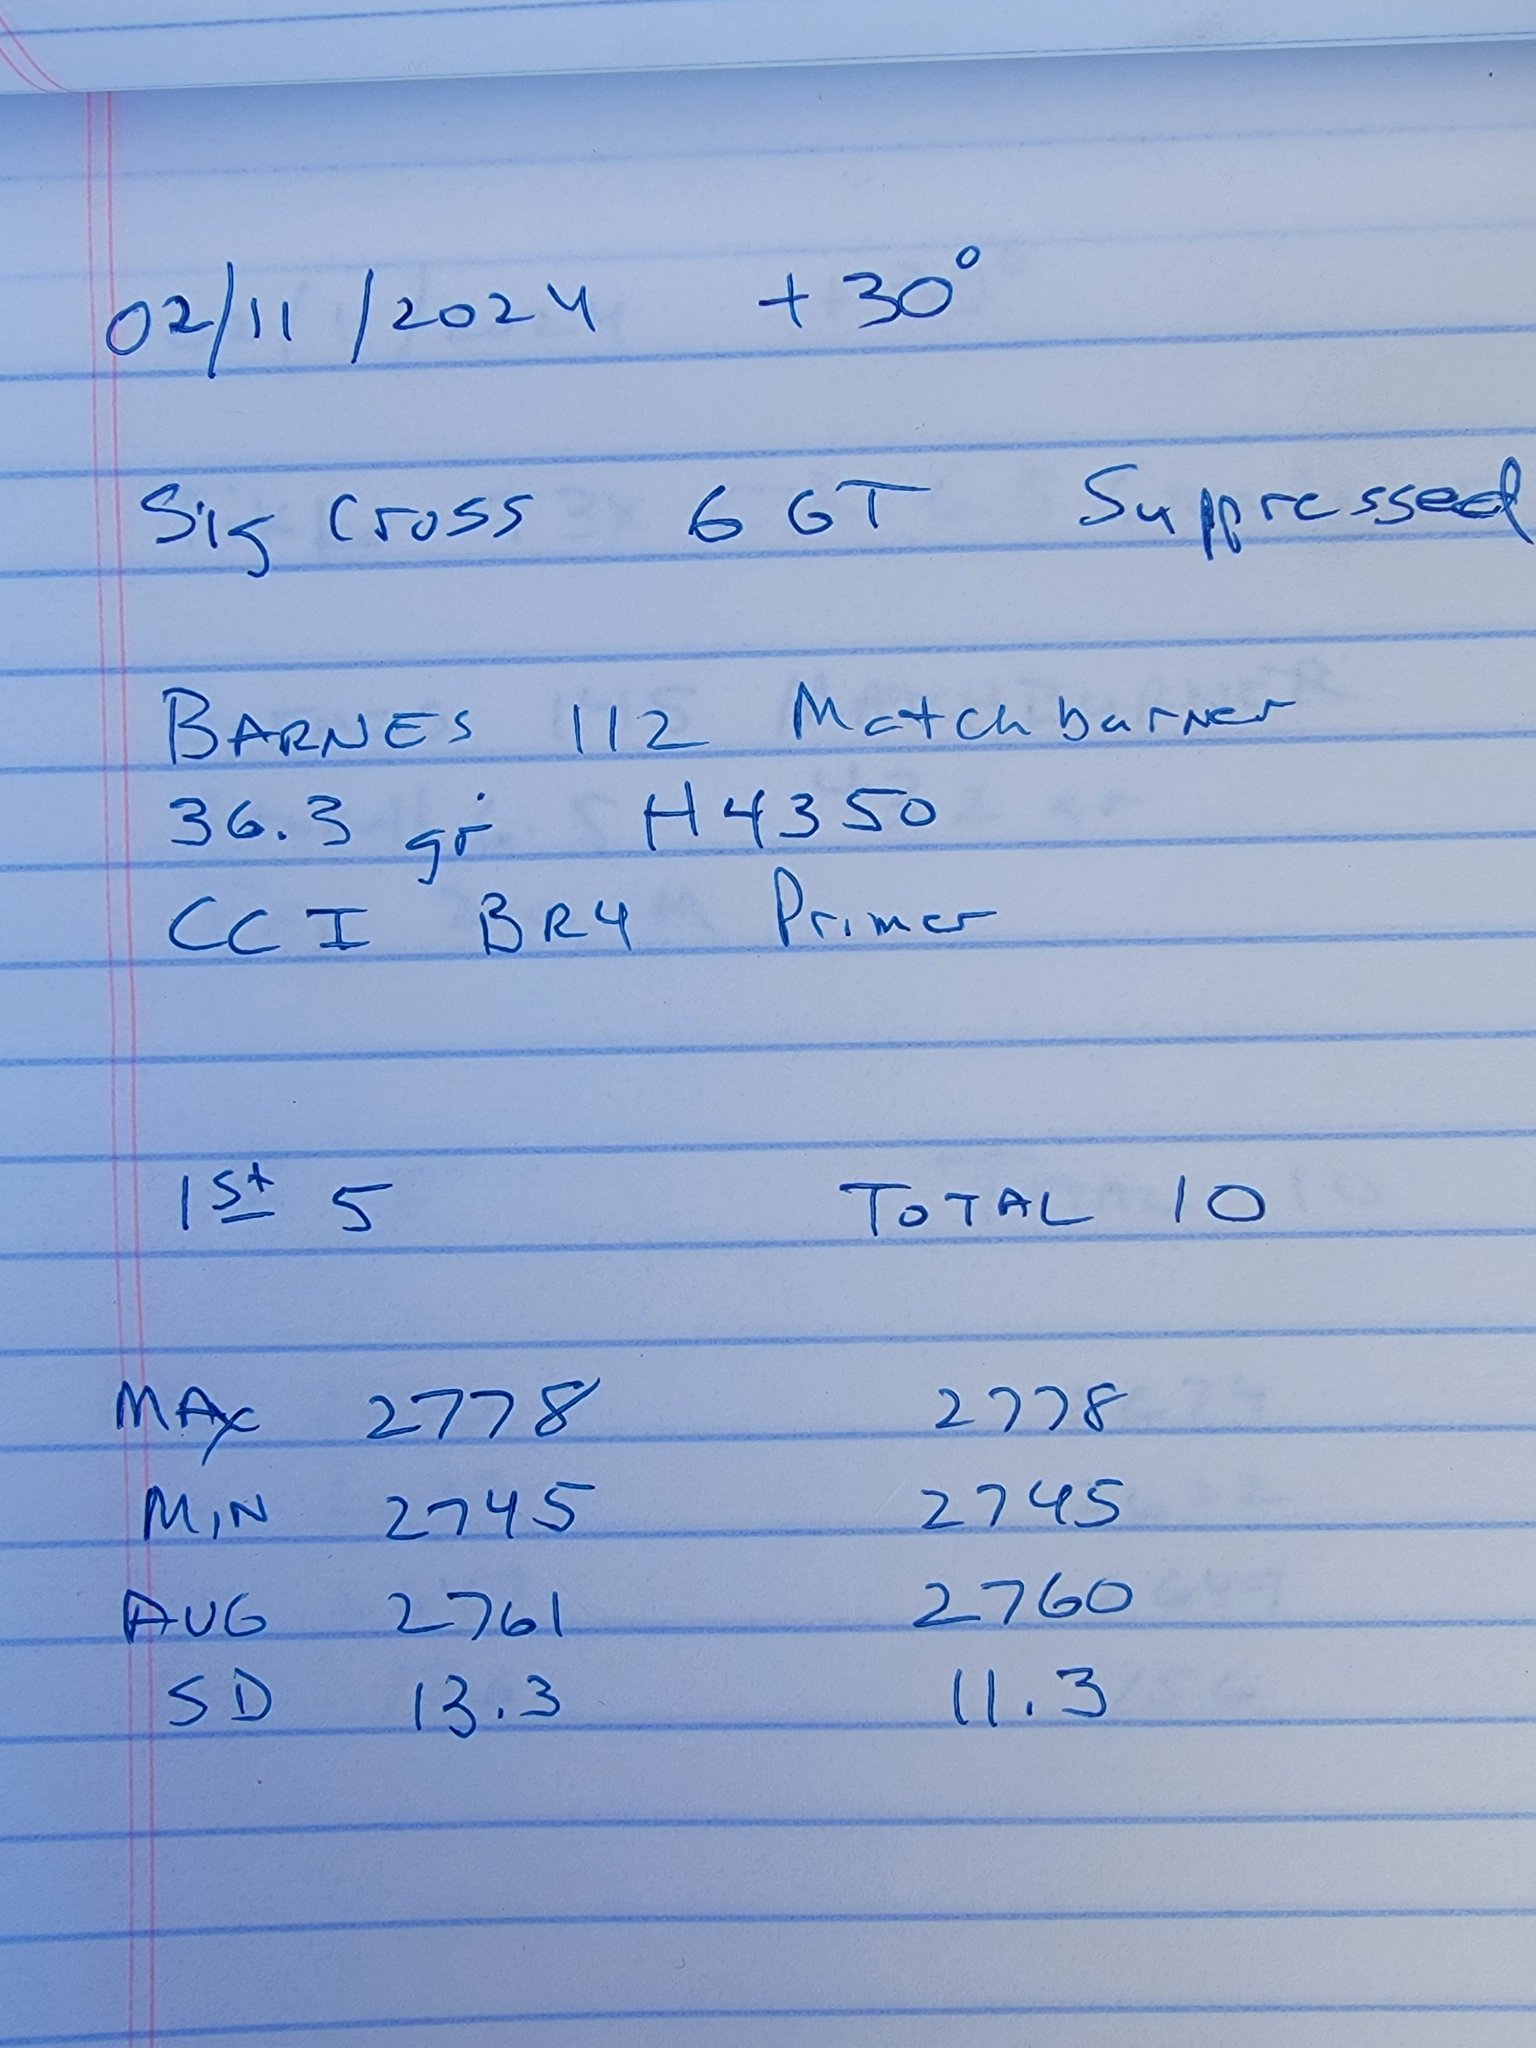 02/11/2024 +30°
Sig Cross 6 GT Suppressed
BARNES 112 Matchburner
36.3 gr H4350
CCI BR4 Primer
1st 5 TOTAL 10
MAX 2778 2778
MIN 2745 2745
AVG 2761 2760
SD 13.3 11.3